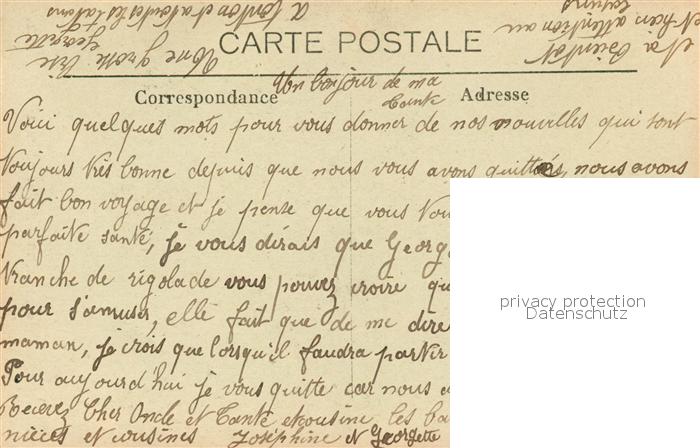 CARTE POSTALE
Correspondance
Adresse
Un bonjour de ma
tante
Voici quelques mots pour vous donner de nos nouvelles qui sont
toujours très bonne depuis que nous vous avons quittés, nous avons
fait bon voyage et je pense que vous
parfaite santé, je vous dirais que Georg
tranche de rigolade vous pouvez croire qu
pour s'amuser, elle fait que de me dire
maman, je crois que lorsqu'il faudra partir
Pour aujourd'hui je vous quitte car nous a
Recevez Cher Oncle et Tante et cousine les ba
nièces et cousines Joséphine et Georgette
Une grosse bise
Georgette
à Tonton et à toutes les tatans
et à bientôt
et bien attention au
privacy protection
Datenschutz